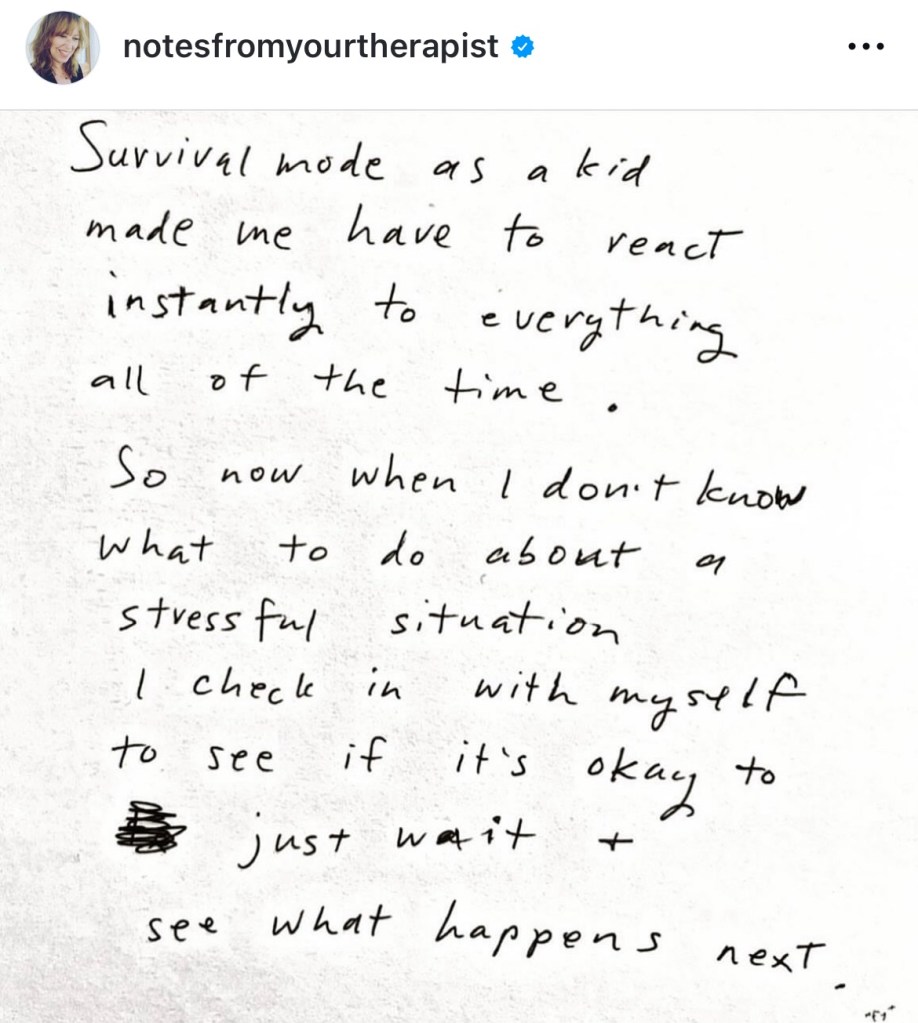 notesfromyourtherapist
Survival mode as a kid
made me have to react
instantly to everything
all of the time.
So now when I don't know
what to do about a
stressful situation
I check in with myself
to see if it's okay to
just wait +
see what happens next.